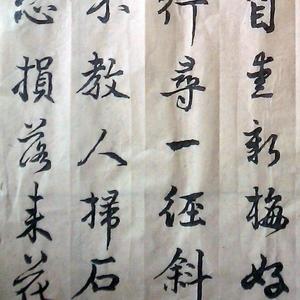 自愛新梅好
行尋一徑斜
不教人掃石
恐損落来花